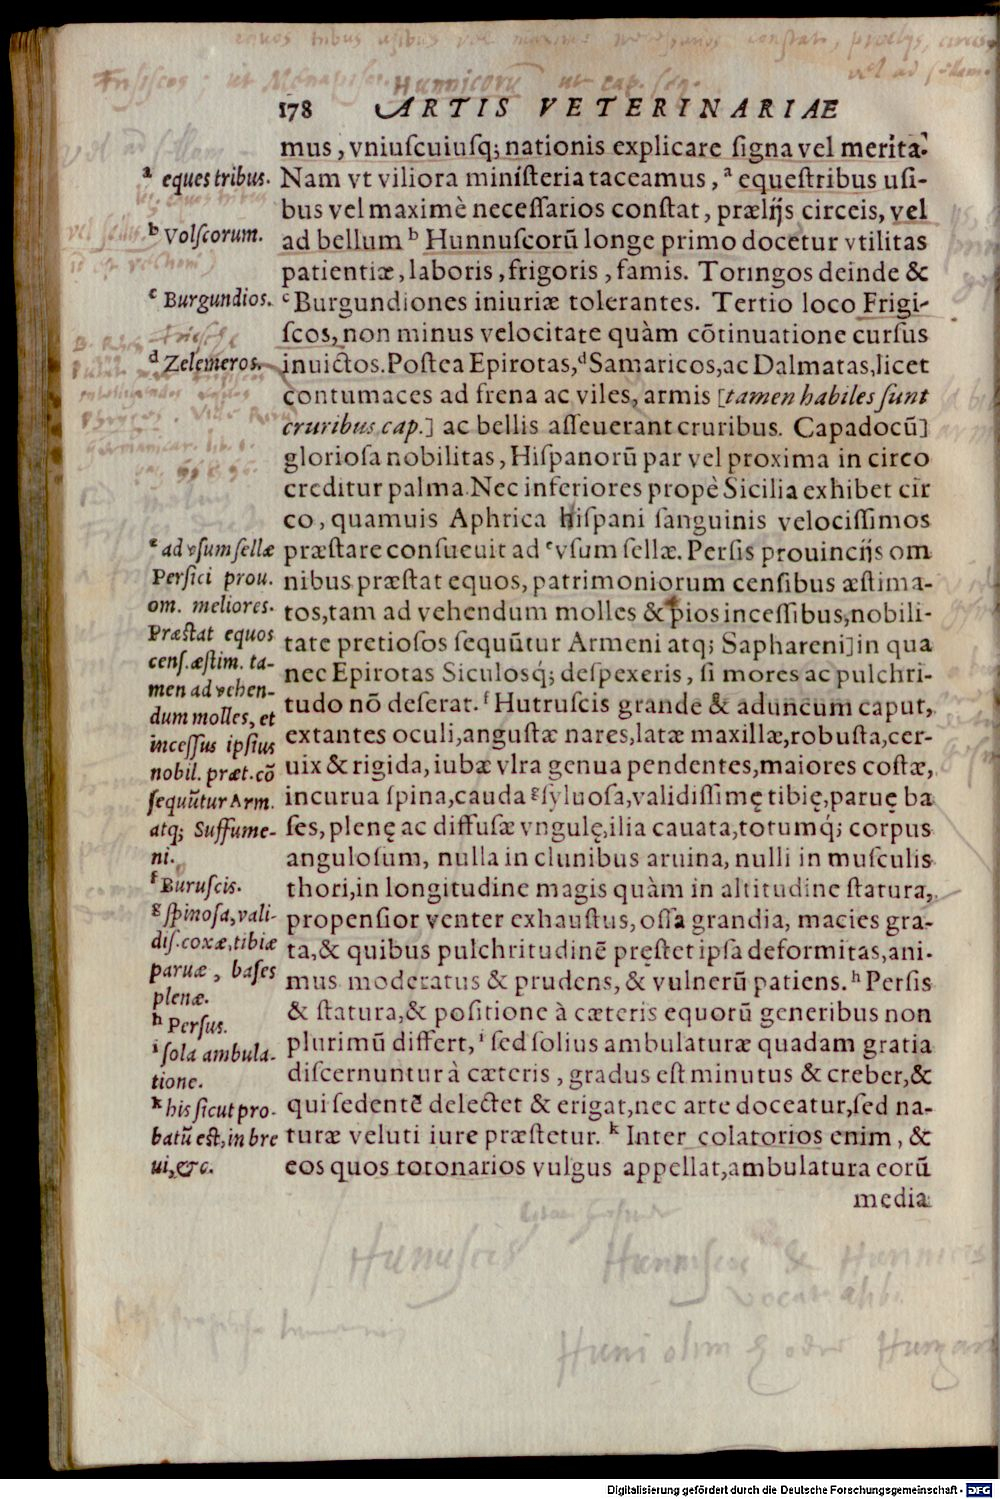 Hunnicorū ut cap. seq.
178 ARTIS VETERINARIAE
mus, vniuscuiusq; nationis explicare signa vel merita.
Nam vt viliora ministeria taceamus, ᵃ equestribus usi-
bus vel maximè necessarios constat, prælijs circeis, vel
ad bellum ᵇ Hunnuscorū longe primo docetur vtilitas
patientiæ, laboris, frigoris, famis. Toringos deinde &
ᶜ Burgundiones iniuriæ tolerantes. Tertio loco Frigi-
scos, non minus velocitate quàm cōtinuatione cursus
inuictos. Postea Epirotas, ᵈ Samaricos, ac Dalmatas, licet
contumaces ad frena ac viles, armis [tamen habiles sunt
cruribus, cap.] ac bellis asseuerant cruribus. Capadocū]
gloriosa nobilitas, Hispanorū par vel proxima in circo
creditur palma. Nec inferiores propè Sicilia exhibet cir
co, quamuis Aphrica hispani sanguinis velocissimos
præstare consueuit ad ᵉ vsum sellæ. Persis prouincijs om
nibus præstat equos, patrimoniorum censibus æstima-
tos, tam ad vehendum molles & pios incessibus, nobili-
tate pretiosos sequūtur Armeni atq; Saphareni] in qua
nec Epirotas Siculosq́; despexeris, si mores ac pulchri-
tudo nō deserat. ᶠ Hutruscis grande & aduncum caput,
extantes oculi, angustæ nares, latæ maxillæ, robusta, cer-
uix & rigida, iubæ vlra genua pendentes, maiores costæ,
incurua spina, cauda ᵍ syluosa, validissimę tibię, paruę ba
ses, plenę ac diffusæ vngulę, ilia cauata, totumq́; corpus
angulosum, nulla in clunibus aruina, nulli in musculis
thori, in longitudine magis quàm in altitudine statura,
propensior venter exhaustus, ossa grandia, macies gra-
ta, & quibus pulchritudinē pręstet ipsa deformitas, ani-
mus moderatus & prudens, & vulnerū patiens. ʰ Persis
& statura, & positione à cæteris equorū generibus non
plurimū differt, ⁱ sed solius ambulaturæ quadam gratia
discernuntur à cæteris, gradus est minutus & creber, &
qui sedentē delectet & erigat, nec arte doceatur, sed na-
turæ veluti iure præstetur. ᵏ Inter colatorios enim, &
eos quos totonarios vulgus appellat, ambulatura eorū
media
ᵃ equestribus.
ᵇ Volscorum.
ᶜ Burgundios.
ᵈ Zelemeros.
ᵉ ad vsum sellæ
Persici prou.
om. meliores.
Præstat equos
cens. æstim. ta-
men ad vehen-
dum molles, et
incessus ipsius
nobil. præt. cō
sequūtur Arm.
atq; Suffume-
ni.
ᶠ Buruscis.
ᵍ spinosa, vali-
dis. coxæ, tibiæ
paruæ, bases
plenæ.
ʰ Persus.
ⁱ sola ambula-
tione.
ᵏ his sicut pro-
batū est, in bre
ui, &c.
Hunuscis
Digitalisierung gefördert durch die Deutsche Forschungsgemeinschaft - DFG